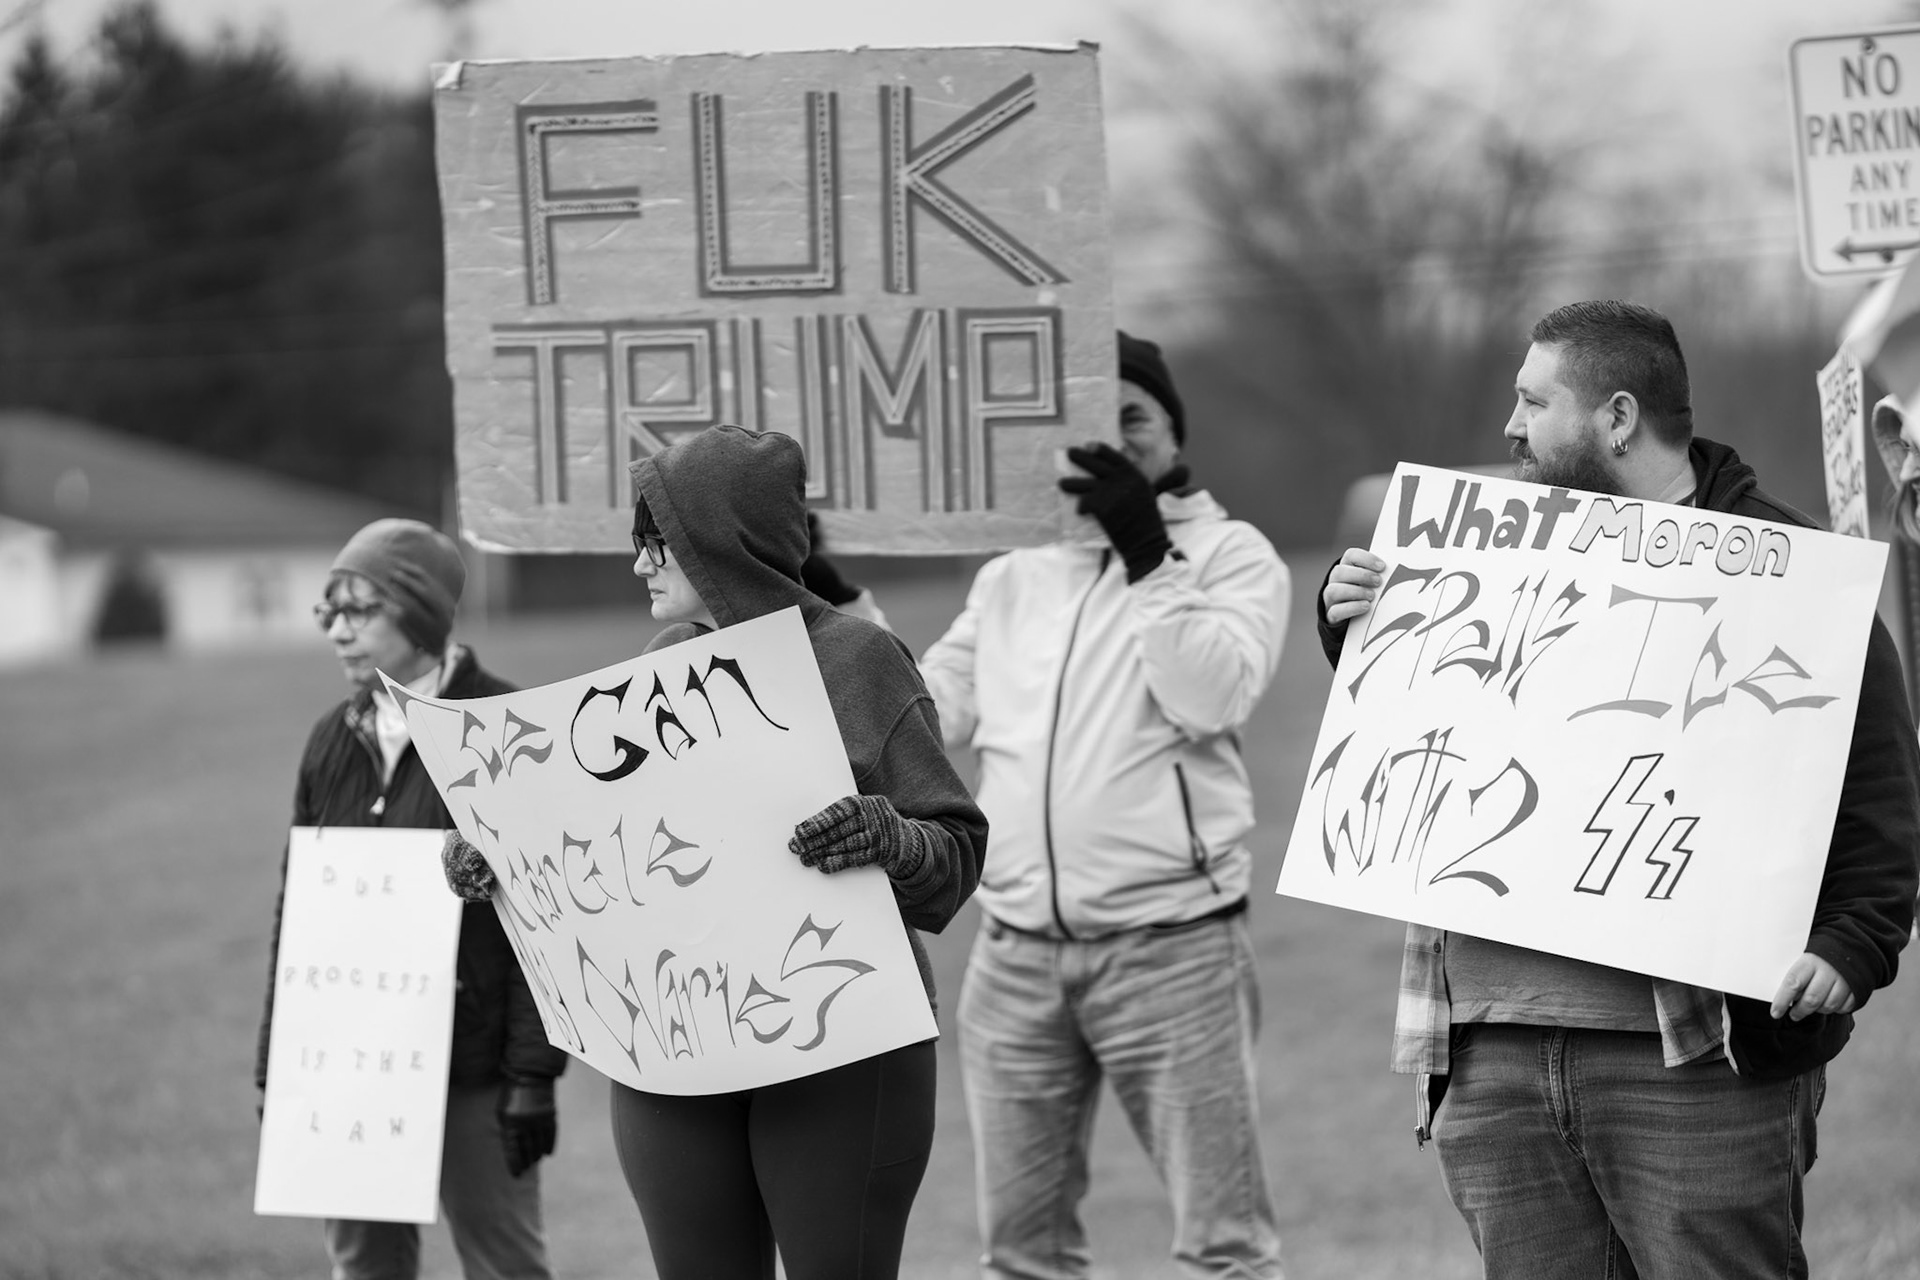 FUK
TRUMP
NO
PARKIN
ANY
TIME
What Moron
Spells Ice
With 2 S's
Ice Can
Gargle
My Ovaries
DUE
PROCESS
IS THE
LAW